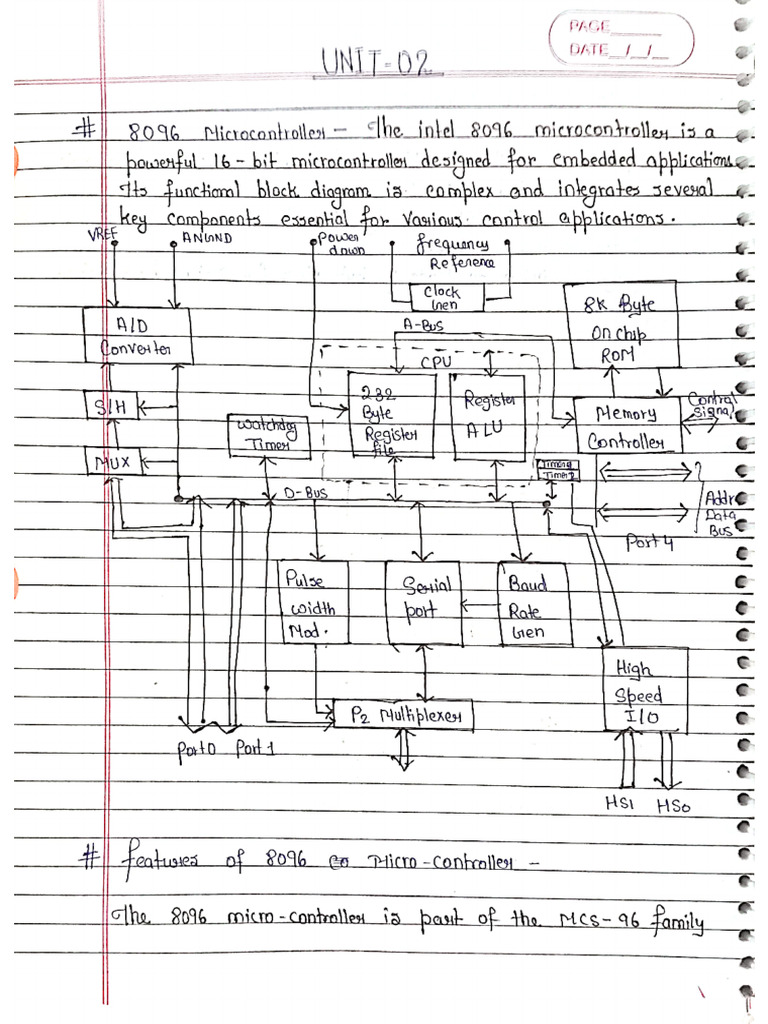 PAGE
DATE _/_/_
UNIT-02
# 8096 Microcontroller - The intel 8096 microcontroller is a
powerful 16-bit microcontroller designed for embedded applications.
Its functional block diagram is complex and integrates several
key components essential for various control applications.
VREF
ANGND
Power down
frequency
Reference
Clock
Gen
8K Byte
On chip
ROM
A/D
Converter
A-Bus
CPU
232
Byte
Register
file
Register
ALU
Memory
Controller
Control
Signal
S/H
Watchdog
Timer
MUX
Timer 1
Timer 2
D-Bus
Addr
Data
Bus
Port 4
Pulse
Width
Mod.
Serial
port
Baud
Rate
Gen
High
Speed
I/O
P2 Multiplexer
Port0 Port 1
HSI HSO
# features of 8096 Micro-Controller -
The 8096 micro-controller is part of the MCS-96 family